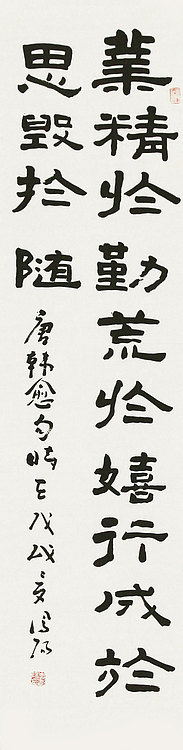 業精於勤荒於嬉行成於
思毀於随
唐韓愈句時在戊戌夏